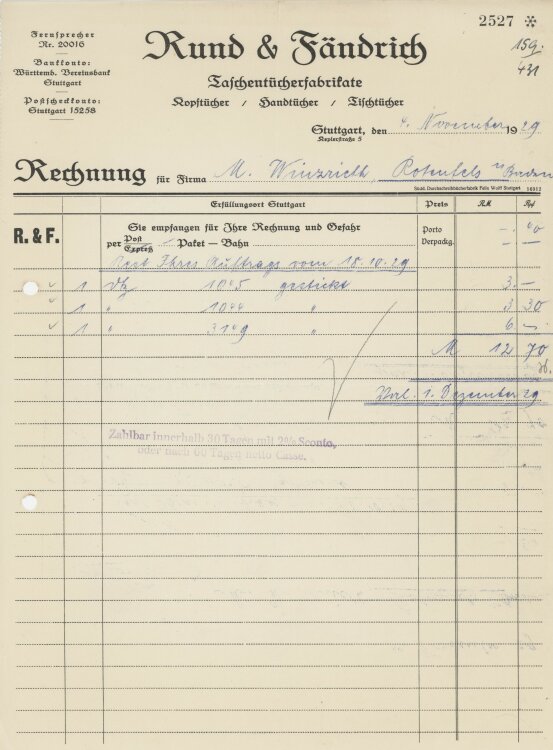 2527 *
159.
431
Fernsprecher
Nr. 20016
Bankkonto:
Württemb. Vereinsbank
Stuttgart
Postscheckkonto:
Stuttgart 15258
Rund & Fändrich
Taschentücherfabrikate
Kopftücher / Handtücher / Tischtücher
Stuttgart, den 4. November 1929
Keplerstraße 5
Rechnung für Firma M. Winzrieth, Rotenfels in Baden
Südd. Durchschreibbücherfabrik Felix Wolff Stuttgart 16912
Erfüllungsort Stuttgart Preis RM Rpf
R. & F. Sie empfangen für Ihre Rechnung und Gefahr
per Post Expreß / Paket – Bahn
Porto -. 40
Verpackg. -. -
Rest Ihres Auftrags vom 18.10.29
1 Dtz 1045 gestickt 3. -
1 " 1044 " 3 30
1 " 3149 " 6 -
M 12 70
Val. 1. Dezember 29
Zahlbar innerhalb 30 Tagen mit 2% Sconto,
oder nach 60 Tagen netto Casse.